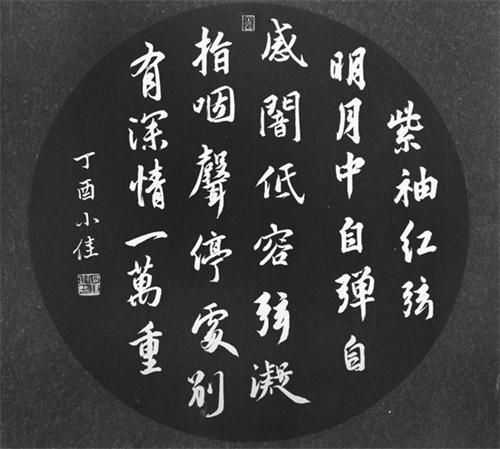 紫袖红弦
明月中自弹自
感闇低容弦凝
指咽聲停處别
有深情一萬重
丁酉小佳